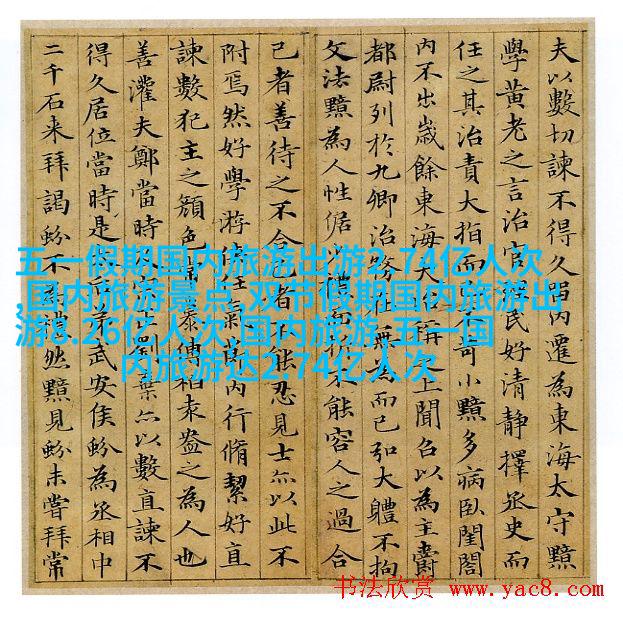 夫以數切諫不得久留內遷為東海太守黯
學黃老之言治官民好清静擇丞史而
任之其治責大指而不苛小黯多病臥閨閤
內不出歲餘東海大治稱之上聞召以為主爵
都尉列於九卿治務在無為而已弘大體不拘
文法黯為人性倨少禮面折不能容人之過合
己者善待之不合己者不能忍見士亦以此不
附焉然好學游俠任氣節內行脩絜好直
諫數犯主之顏色常慕傅柏袁盎之為人也
善灌夫鄭當時宗正劉棄亦以數直諫不
得久居位當時是弟武安侯蚡為丞相中
二千石来拜謁蚡不為禮然黯見蚡未嘗拜常
五一假期国内旅游出游2.74亿人次
,国内旅游景点 双节假期国内旅游出
游8.26亿人次 国内旅游 五一国
内旅游达2.74亿人次
书法欣赏 www.yac8.com